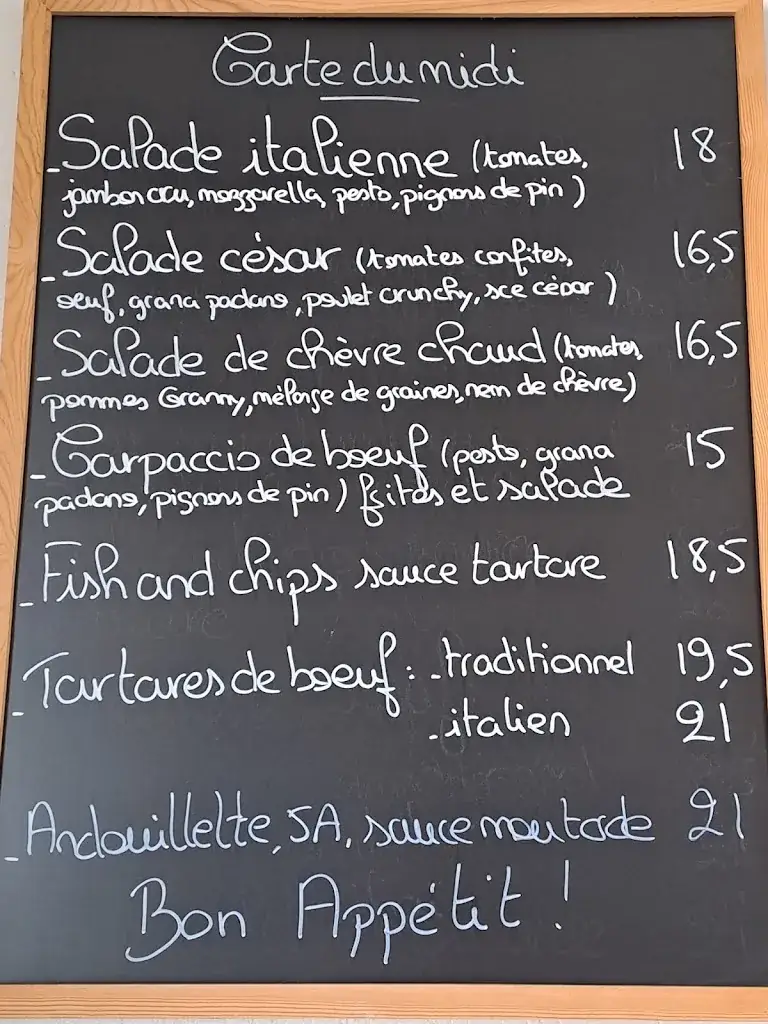 Carte du midi
- Salade italienne (tomates, 18
jambon cru, mozzarella, pesto, pignons de pin)
- Salade césar (tomates confites, 16,5
oeuf, grana padano, poulet crunchy, sce césar)
- Salade de chèvre chaud (tomates, 16,5
pommes Granny, mélange de graines, nem de chèvre)
- Carpaccio de boeuf (pesto, grana 15
padano, pignons de pin) frites et salade
- Fish and chips sauce tartare 18,5
- Tartares de boeuf : - traditionnel 19,5
- italien 21
- Andouillette, 5A, sauce moutarde 21
Bon Appétit !